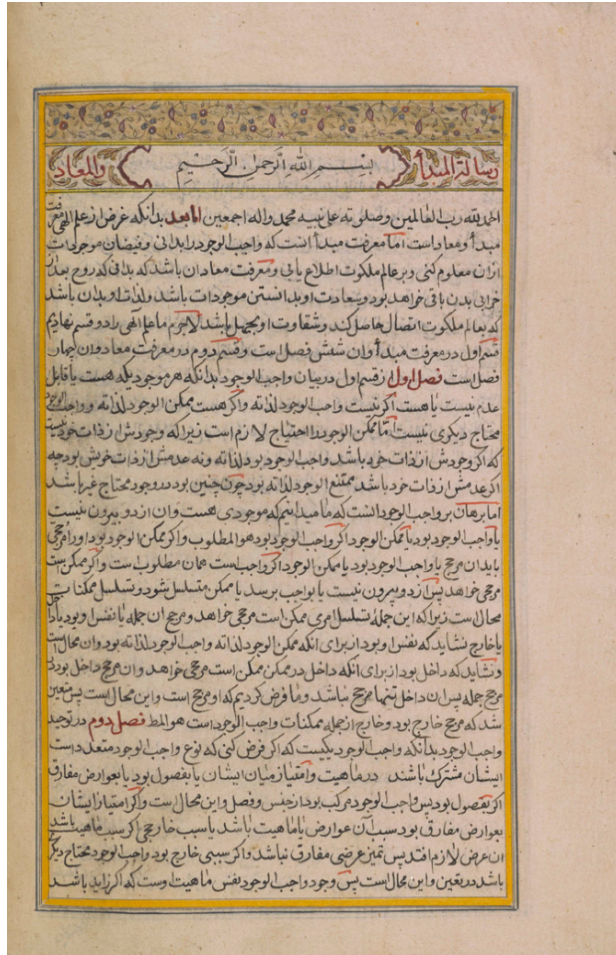 رسالة المبدأ بسم الله الرحمن الرحيم والمعاد
الحمد لله رب العالمین وصلوته علی نبیه محمد واله اجمعین اما بعد بدانکه غرض از علم الهی معرفت
مبدأ ومعاد است اما معرفت مبدأ انست که واجب الوجود را بدانی وفیضان موجودات
ازان معلوم کنی وبر عالم ملکوت اطلاع یابی ومعرفت معاد ان باشد که بدانی که روح بعد از
خرابی بدن باقی خواهد بود وسعادت او بدانستن موجودات باشد ولذات او بدان باشد
که بعالم ملکوت اتصال حاصل کند وشقاوت او بجهل باشد لاجرم ما علم الهی را دو قسم نهادیم
قسم اول در معرفت مبدأ وان شش فصل است وقسم دوم در معرفت معاد وان چهار
فصل است فصل اول از قسم اول در بیان واجب الوجود بدانکه هر موجودی که هست یا قابل
عدم نیست یا هست اگر نیست واجب الوجود لذاته واگر هست ممکن الوجود لذاته وواجب الوجود
محتاج دیکری نیست اما ممکن الوجود را احتیاج لازم است زیرا که وجودش از ذات خود نیست
که اکر وجودش از ذات خود باشد واجب الوجود بود لذاته ونه عدمش از ذات خویش بود چه
اکر عدمش از ذات خود باشد ممتنع الوجود لذاته بود چون چنین بود در وجود محتاج غیر باشد
اما برهان بر واجب الوجود انست که ما میدانیم که موجودی هست وان از دو بیرون نیست
یا واجب الوجود بود یا ممکن الوجود اکر واجب الوجود بود هو المطلوب واکر ممکن الوجود بود او را مرجحی
باید ان مرجح یا واجب الوجود بود یا ممکن الوجود اکر واجب است همان مطلوب است واکر ممکن است
مرجحی خواهد پس از دو بیرون نیست یا بواجب برسد یا ممکن متسلسل شود وتسلسل ممکنات
محال است زیرا که این جمله تسلسل امری ممکن است مرجحی خواهد ومرجح ان جمله یا نفس او بود یا داخل
یا خارج نشاید که نفس او بود از برای انکه ممکن الوجود لذاته واجب الوجود لذاته بود وان محال است
ونشاید که داخل بود از برای انکه داخل در ممکن ممکن است مرجحی خواهد وان مرجح داخل بود در
مرجح جمله پس ان داخل تنها مرجح نباشد وما فرض کردیم که او مرجح است واین محال است پس متعین
شد که مرجح خارج بود وخارج از جمله ممکنات واجب الوجود است هو المط فصل دوم در توحید
واجب الوجود بدانکه واجب الوجود یکیست که اکر فرض کنی که نوع واجب الوجود متعدد است
ایشان مشترک باشند در ماهیت وامتیاز میان ایشان یا بفصول بود یا بعوارض مفارق
اکر بفصول بود پس واجب الوجود مرکب بود از جنس وفصل واین محال است واکر امتیاز ایشان
بعوارض مفارق بود سبب آن عوارض یا ماهیت باشد یا سبب خارجی اکر سبب ماهیت باشد
ان عرض لازم افتد پس تمیز عرضی مفارق نباشد واکر سببی خارج بود واجب الوجود محتاج دیکری
باشد در تعین واین محال است پس وجود واجب الوجود نفس ماهیت اوست که اکر زاید باشد